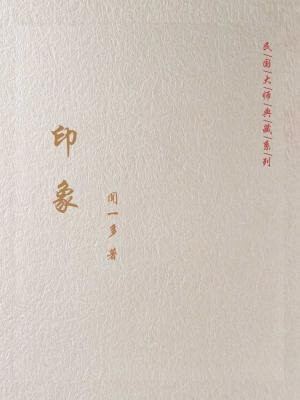 民国大师典藏系列
印象
闻一多 著